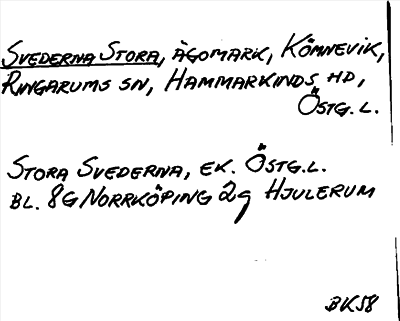 SVEDERNA STORA, ÄGOMARK, KÖMNEVIK,
RINGARUMS SN, HAMMARKINDS HD,
ÖSTG. L.
STORA SVEDERNA, EK. ÖSTG. L.
BL. 8G NORRKÖPING 2g HJULERUM
BK58